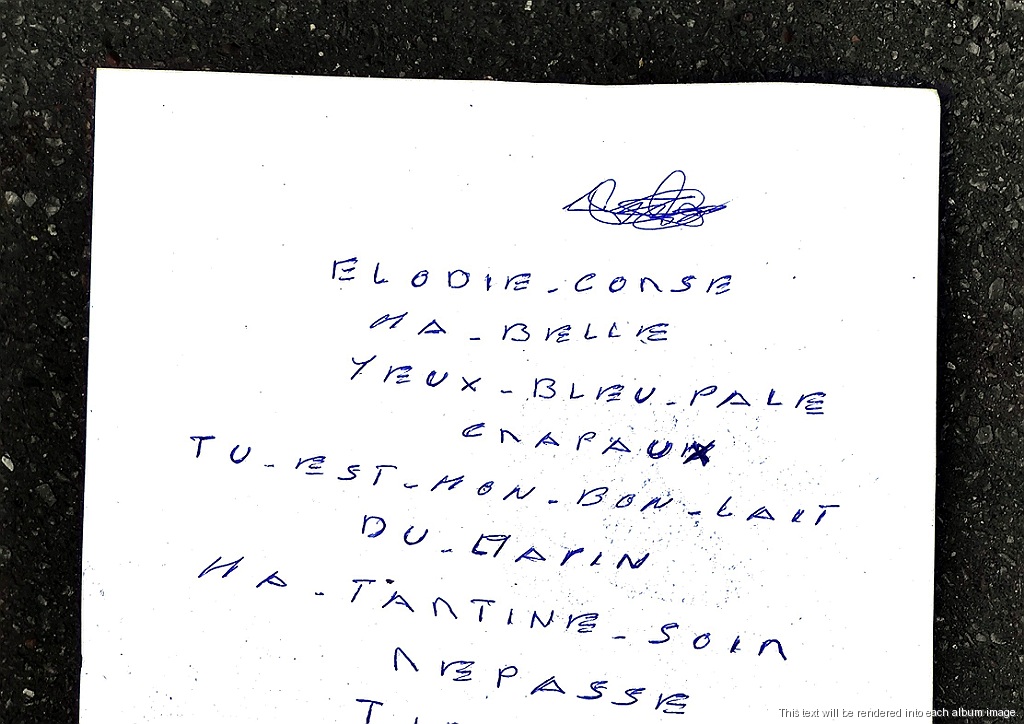 ELODIE-CORSE
MA-BELLE
YEUX-BLEU-PALE
CRAPAUX
TU-EST-MON-BON-LAIT
DU-MATIN
MA-TARTINE-SOIR
REPASSE
This text will be rendered into each album image.